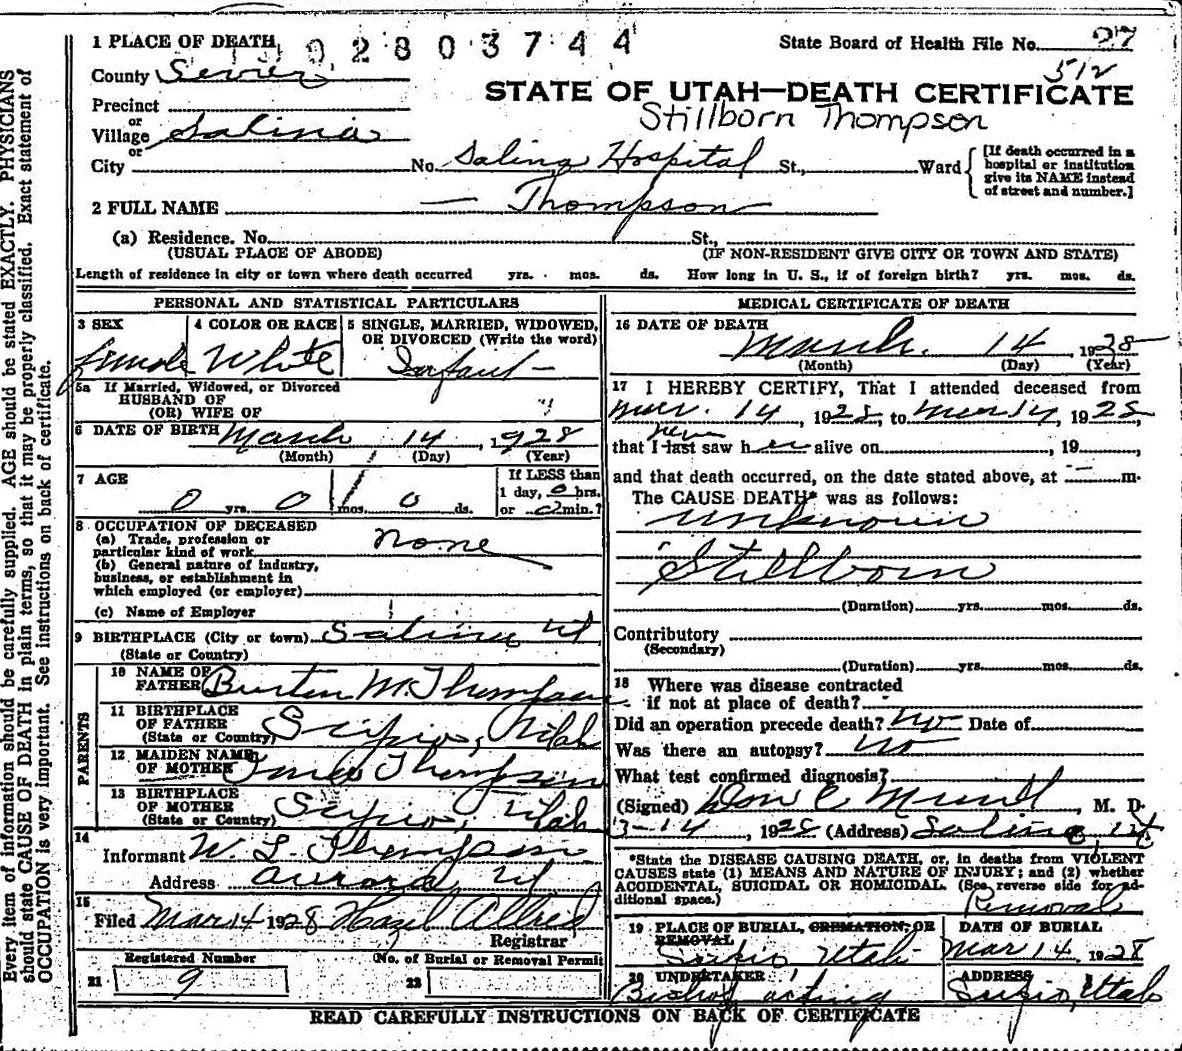 1 PLACE OF DEATH
1 9 0 2 8 0 3 7 4 4
State Board of Health File No. 27
512
County Sevier
STATE OF UTAH—DEATH CERTIFICATE
Precinct
or
Village Salina
Stillborn Thompson
or
City No. Salina Hospital St., Ward
[If death occurred in a
hospital or institution
give its NAME instead
of street and number.]
2 FULL NAME — Thompson
(a) Residence. No. St.,
(USUAL PLACE OF ABODE) (IF NON-RESIDENT GIVE CITY OR TOWN AND STATE)
Length of residence in city or town where death occurred yrs. mos. ds. How long in U. S., if of foreign birth? yrs. mos. ds.
PERSONAL AND STATISTICAL PARTICULARS
3 SEX
female
4 COLOR OR RACE
White
5 SINGLE, MARRIED, WIDOWED,
OR DIVORCED (Write the word)
Infant —
5a If Married, Widowed, or Divorced
HUSBAND OF
(OR) WIFE OF "
6 DATE OF BIRTH March 14, 1928
(Month) (Day) (Year)
7 AGE
0 yrs. 0 mos. 0 ds.
If LESS than
1 day, 0 hrs.
or 0 min.?
8 OCCUPATION OF DECEASED
(a) Trade, profession or
particular kind of work none
(b) General nature of industry,
business, or establishment in
which employed (or employer)
(c) Name of Employer
9 BIRTHPLACE (City or town) Salina Ut
(State or Country)
PARENTS
10 NAME OF
FATHER Burton M. Thompson
11 BIRTHPLACE
OF FATHER Scipio, Utah
(State or Country)
12 MAIDEN NAME
OF MOTHER Thompson
13 BIRTHPLACE
OF MOTHER Scipio, Utah
(State or Country)
14
Informant W. L. Thompson
Address Aurora, Ut
15
Filed Mar 14 1928 Hazel Allred
Registrar
Registered Number
21 9
No. of Burial or Removal Permit
22
MEDICAL CERTIFICATE OF DEATH
16 DATE OF DEATH
March 14, 1928
(Month) (Day) (Year)
17 I HEREBY CERTIFY, That I attended deceased from
Mar. 14 1928, to Mar 14, 1928,
never
that I last saw her alive on, 19,
and that death occurred, on the date stated above, at — m.
The CAUSE DEATH* was as follows:
unknown
Stillborn
(Duration) yrs. mos. ds.
Contributory
(Secondary)
(Duration) yrs. mos. ds.
18 Where was disease contracted
if not at place of death? -
Did an operation precede death? No Date of
Was there an autopsy? No
What test confirmed diagnosis?
(Signed) Don C, M. D.
3-14, 1928 (Address) Salina, Ut
*State the DISEASE CAUSING DEATH, or, in deaths from VIOLENT
CAUSES state (1) MEANS AND NATURE OF INJURY; and (2) whether
ACCIDENTAL, SUICIDAL OR HOMICIDAL. (See reverse side for ad-
ditional space.)
Removal
19 PLACE OF BURIAL, CREMATION, OR
REMOVAL
Scipio Utah
DATE OF BURIAL
Mar 14, 1928
20 UNDERTAKER
Bishop acting
ADDRESS
Scipio, Utah
READ CAREFULLY INSTRUCTIONS ON BACK OF CERTIFICATE
Every item of information should be carefully supplied. AGE should be stated EXACTLY. PHYSICIANS
should state CAUSE OF DEATH in plain terms, so that it may be properly classified. Exact statement of
OCCUPATION is very important. See instructions on back of certificate.